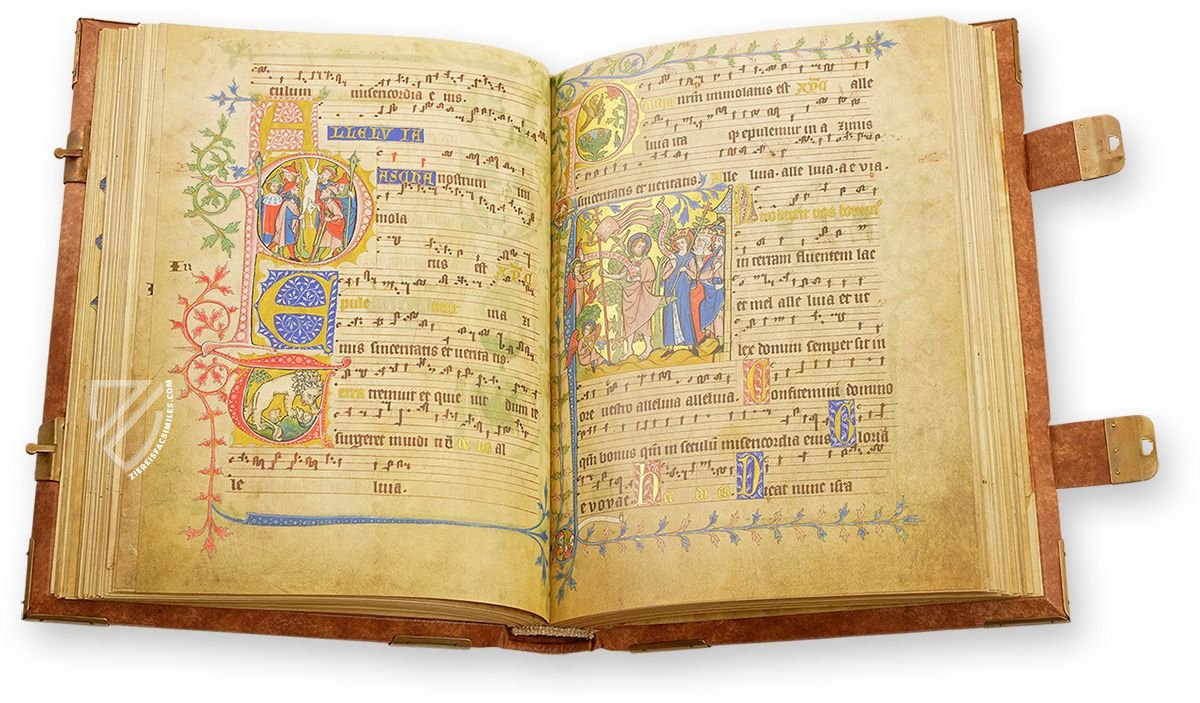 culum misericordia e ius.
A LLELV IA
P ASCHA nostrum im
mola
tus est XPC
E pule mur ina zi
mis sinceritatis et verita tis.
T erra tremuit et quie uit dum re
surgeret iudi
al
le luia.
In
nrm immolatus est XPC alle
luia ita q epulemur in a zimis
sinceritatis et ueritatis. alle luia. alle luia. a e via.
Introduxit uos dominus
in terram fluentem lac
et mel alle luia et ut
lex domini semper sit in
ore uestro alleluia alleluia. Confitemini domino
qm bonus qm in seculum misericordia eius Gloria
e vovae. Hec di es. Dicat nunc isra
ZIFREISFACSIMILES.COM